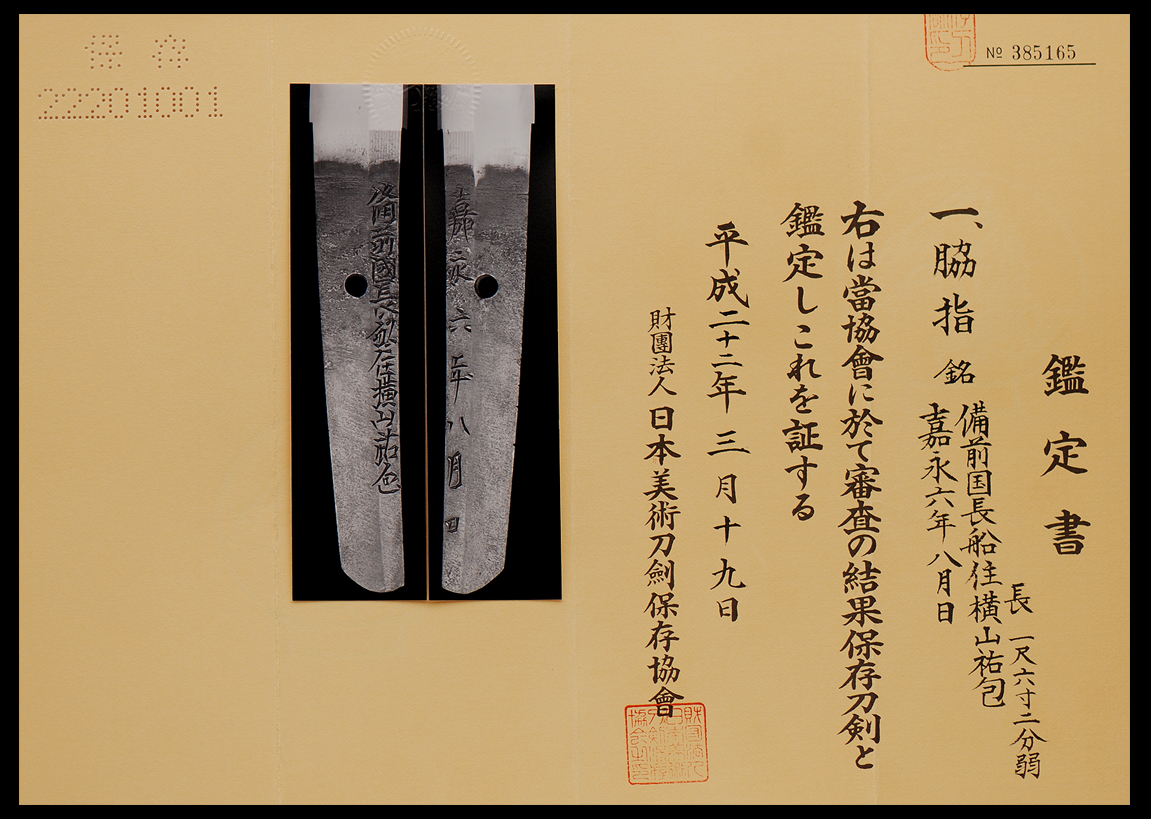 保存
22201001
No 385165
鑑定書
長 一尺六寸二分弱
一、脇指 銘 備前国長船住横山祐包
嘉永六年八月日
右は當協會に於て審査の結果保存刀剣と
鑑定しこれを証する
平成二十二年三月十九日
財團法人日本美術刀劍保存協會
嘉永六年八月日
備前國長船住横山祐包